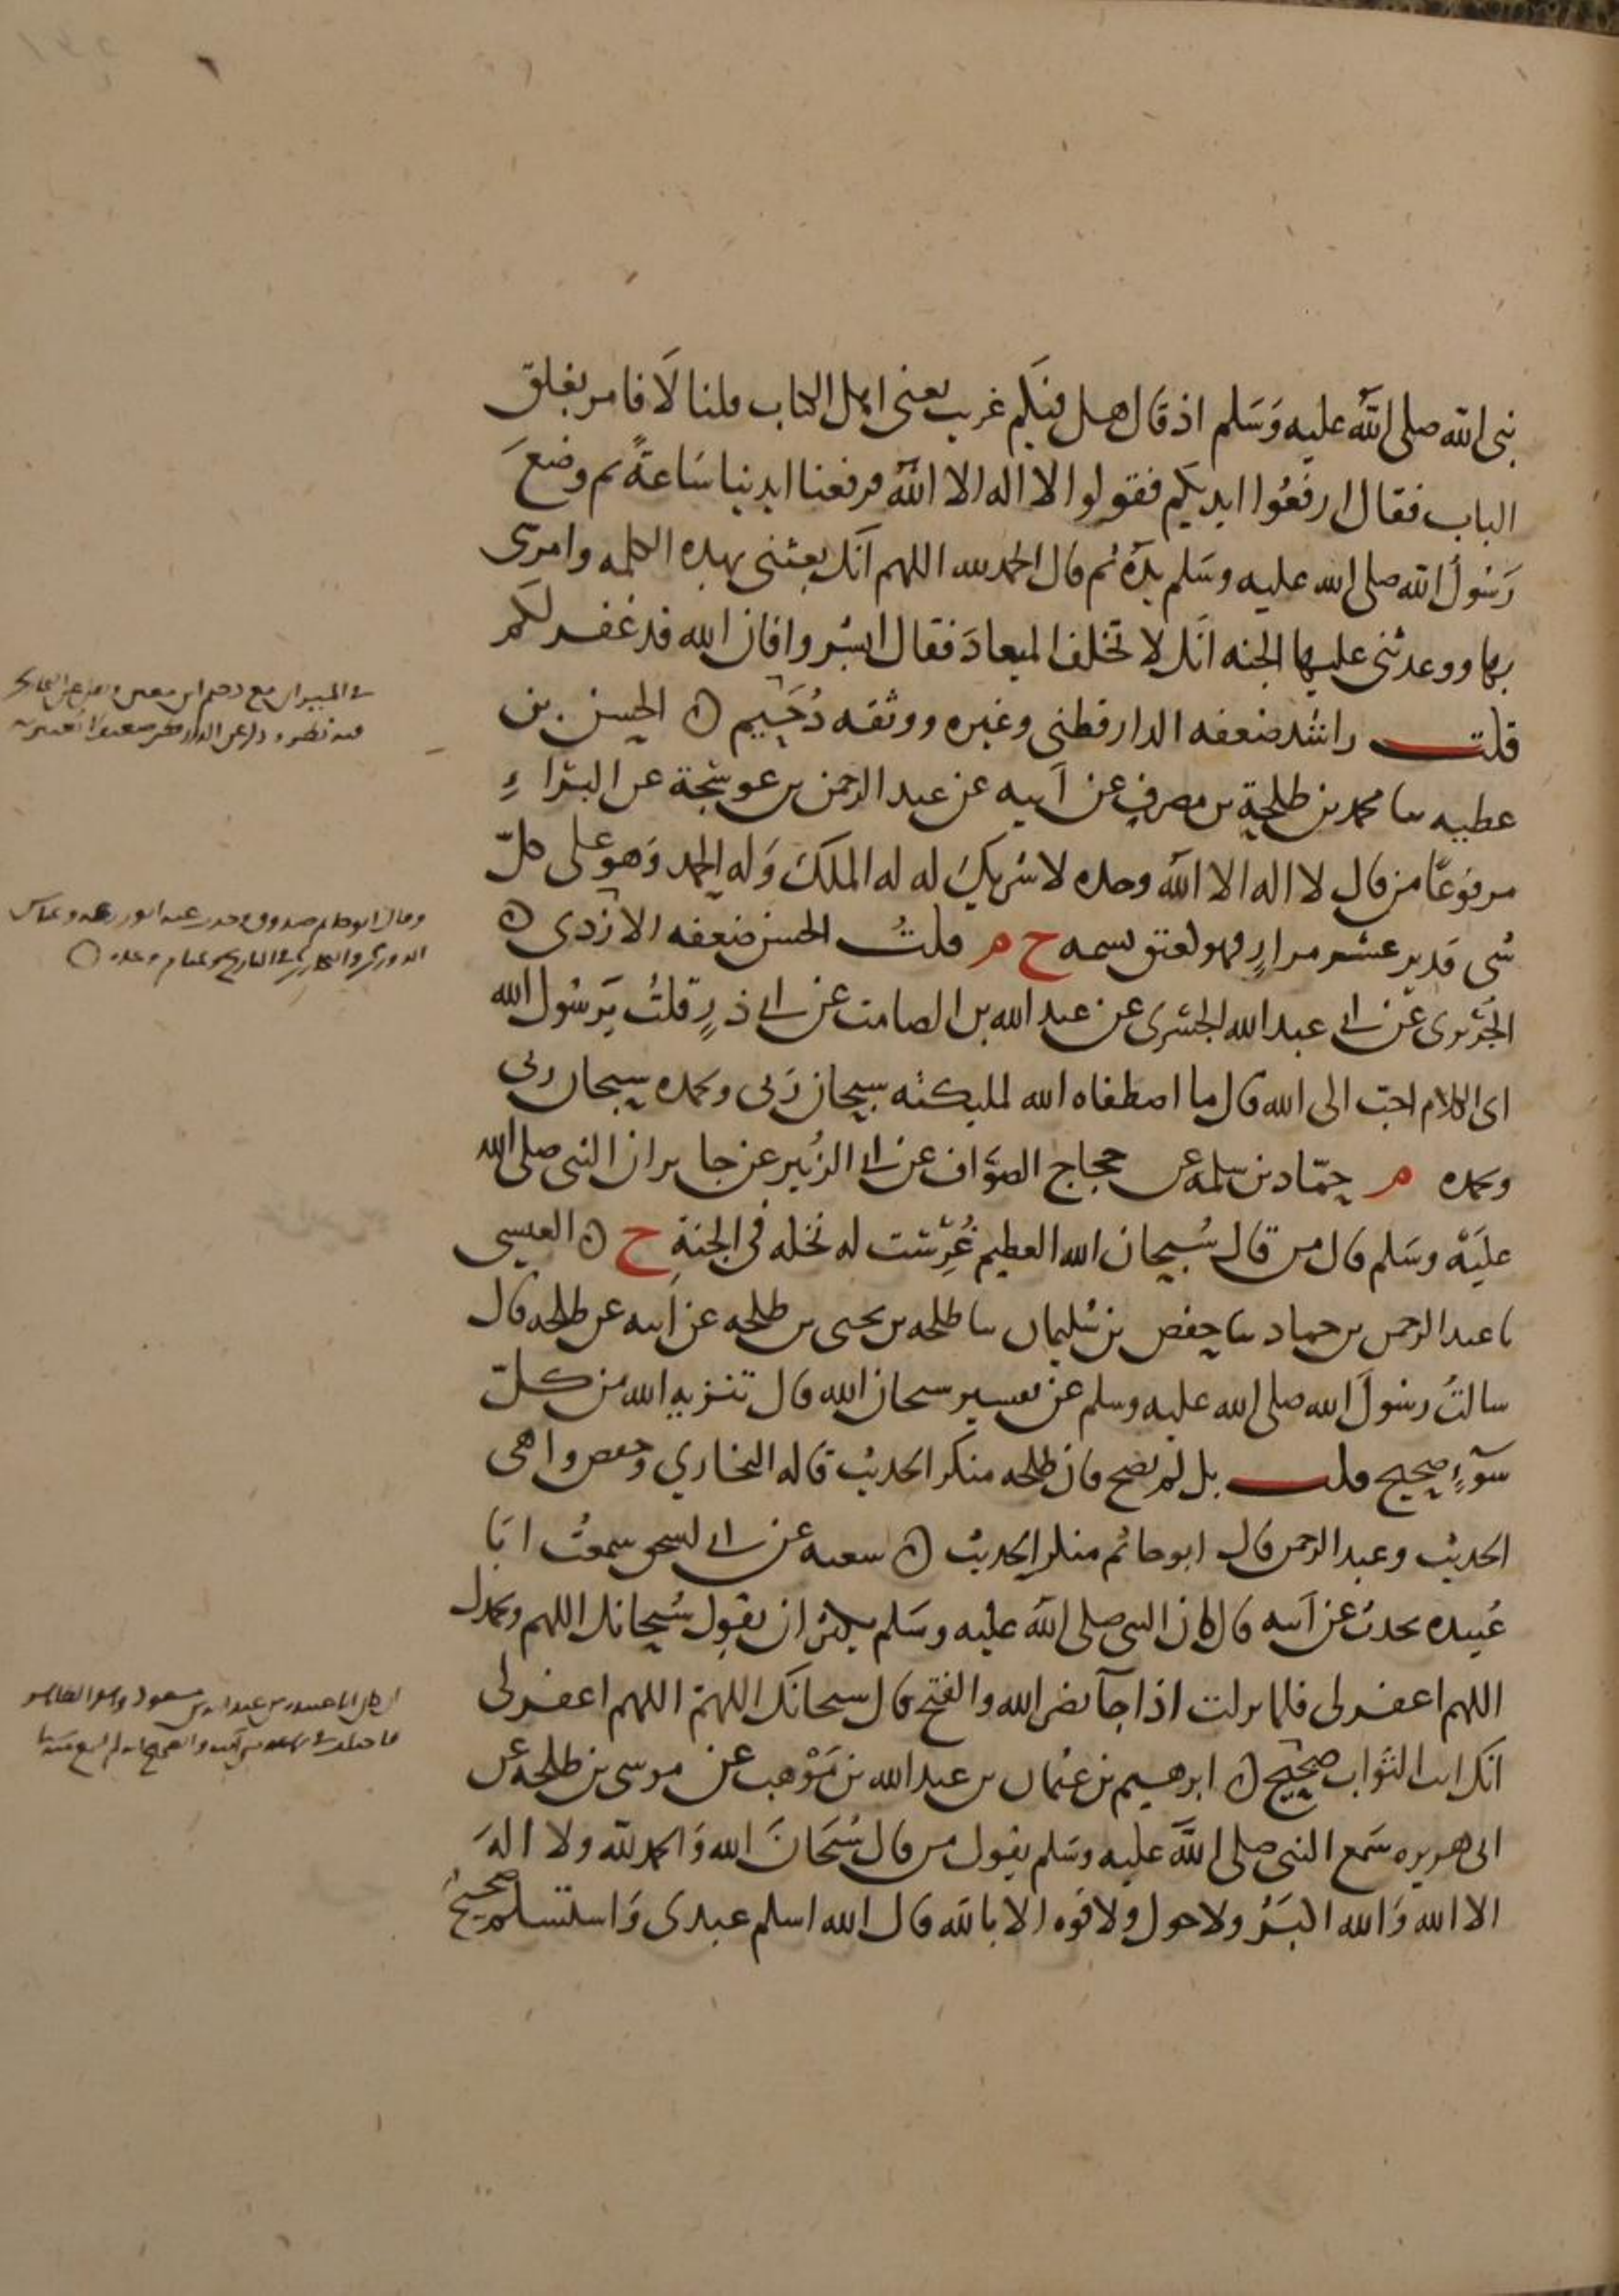 نبى الله صلى الله عليه وسلم اذ قال هل فيكم غريب يعنى اهل الكتاب قلنا لا فامر بغلق
الباب فقال ارفعوا ايديكم فقولوا لا اله الا الله فرفعنا ايدينا ساعة ثم وضع
رسول الله صلى الله عليه وسلم يده ثم قال الحمد لله اللهم انك بعثتنى بهذه الكلمه وامرتنى
بها ووعدتنى عليها الجنه انك لا تخلف الميعاد فقال ابشروا فان الله قد غفر لكم
قلت راشد ضعفه الدارقطنى وغيره ووثقه دحيم ه الحسن بن
عطيه سا محمد بن طلحة بن مصرف عن ابيه عن عبد الرحمن بن عوسجة عن البراء
مرفوعا من قال لا اله الا الله وحده لا شريك له له الملك وله الحمد وهو على كل
شى قدير عشر مرار فهو كعتق نسمه خ م قلت الحسن ضعفه الازدى ه
الجريرى عن ابى عبد الله الجسرى عن عبد الله بن الصامت عن ابى ذر قلت يرسول الله
اى الكلام احب الى الله قال ما اصطفاه الله لمليكته سبحان ربى وبحمده سبحان ربى
وبحمده م حماد بن سلمه عن حجاج الصواف عن ابى الزبير عن جابر ان النبى صلى الله
عليه وسلم قال من قال سبحان الله العظيم غرست له نخله فى الجنة خ ه العيسى
سا عبد الرحمن بن حماد سا حفص بن سليمان سا طلحه بن يحيى بن طلحه عن ابيه عن طلحه قال
سالت رسول الله صلى الله عليه وسلم عن تفسير سبحان الله قال تنزيه الله من كل
سوء صحيح قلت بل لم يصح فان طلحه منكر الحديث قاله البخاري وحفص واهى
الحديث وعبد الرحمن قال ابو حاتم منكر الحديث ه شعبه عن ابى اسحق سمعت ابا
عبيده يحدث عن ابيه قال كان النبى صلى الله عليه وسلم يكثر ان يقول سبحانك اللهم وبحمدك
اللهم اغفر لى فلما نزلت اذا جآ نصر الله والفتح قال سبحانك اللهم اللهم اغفر لى
انك انت التواب صحيح ه ابرهيم بن عثمان بن عبد الله بن موهب عن موسى بن طلحه عن
ابى هريره سمع النبى صلى الله عليه وسلم يقول من قال سبحان الله والحمد لله ولا اله
الا الله والله اكبر ولا حول ولا قوه الا بالله قال الله اسلم عبدى واستسلم صحيح
وقال ابو حاتم صدوق